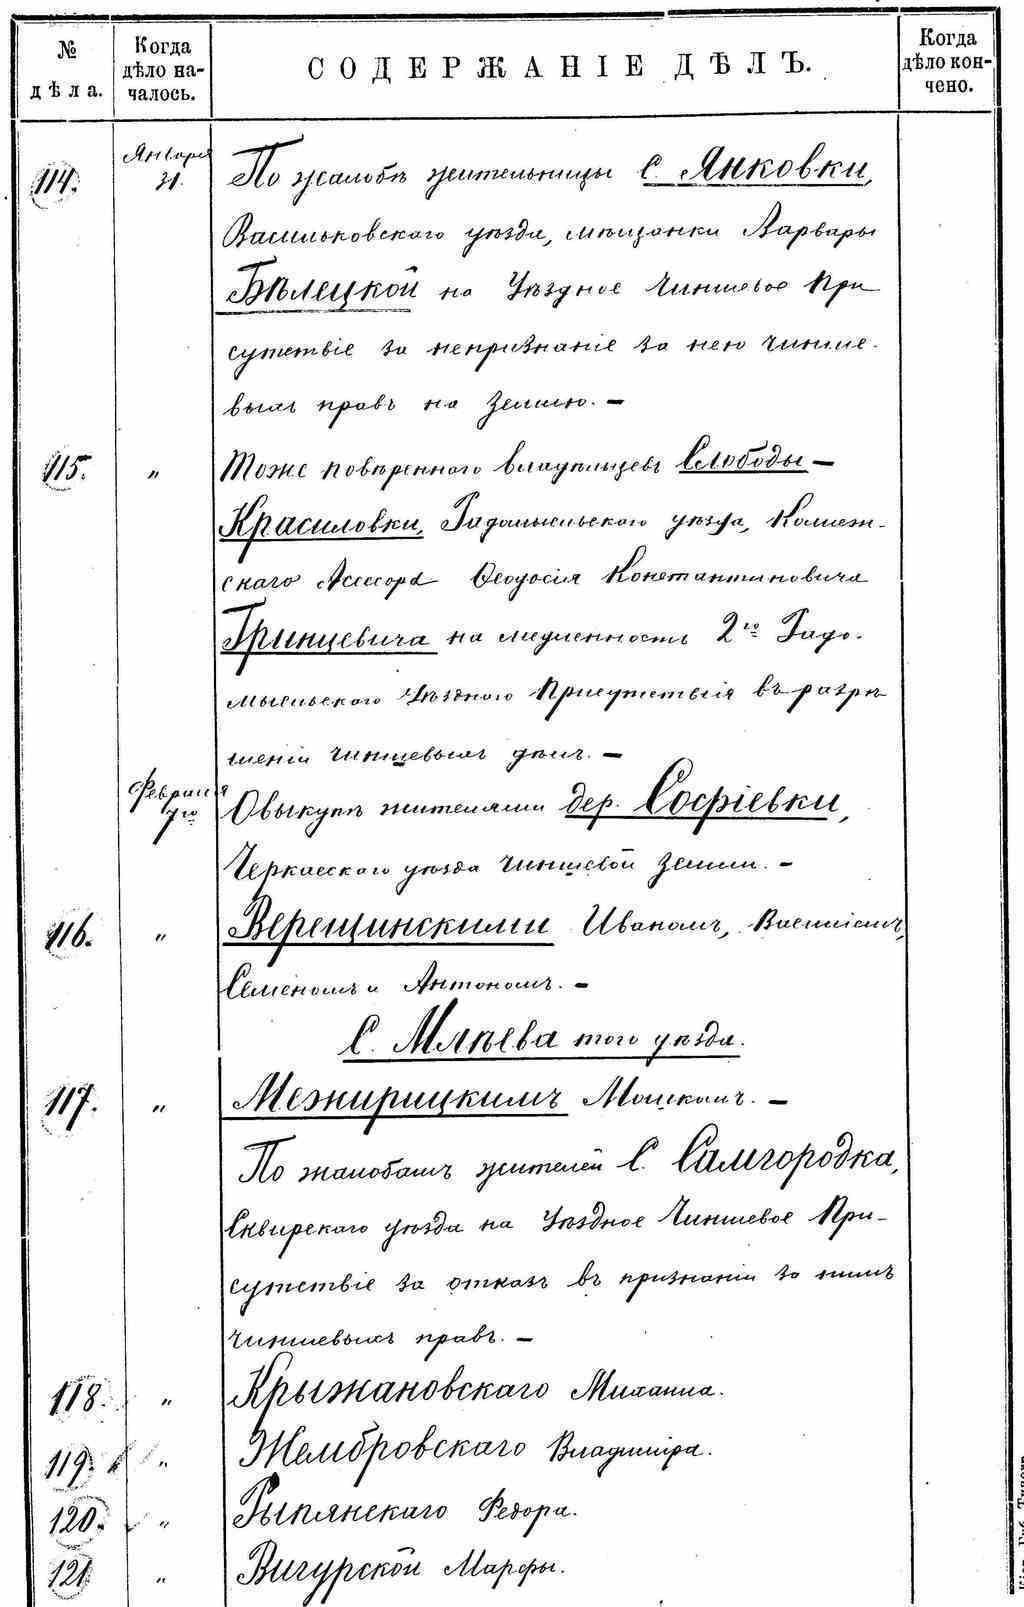 № дѣла.
Когда дѣло началось.
СОДЕРЖАНІЕ ДѢЛЪ.
Когда дѣло кончено.
114. Января 31. По жалобѣ жительницы с. Янковки,
Васильковскаго уѣзда, мѣщанки Варвары
Бѣлецкой на Уѣздное Чиншевое При
сутствіе за непризнаніе за нею чинше-
выхъ правъ на землю. —
115. „ Тоже повѣреннаго владѣльцевъ Слободы —
Красиловки, Радомысльскаго уѣзда, Коллеж-
скаго Асесора Феодосія Константиновича
Гринцевича на медленность 2го Радо-
мысльскаго Уѣзднаго Присутствія въ разрѣ
шеніи чиншевыхъ дѣлъ. —
Февраля 7го О выкупѣ жителями дер. Софіевки,
Черкасскаго уѣзда чиншевой земли. —
116. „ Верещинскими Иваномъ, Василіемъ,
Семеномъ и Антономъ. —
С. Млѣева того уѣзда.
117. „ Межирицкимъ Мошкомъ. —
По жалобамъ жителей с. Самгородка,
Сквирскаго уѣзда на Уѣздное Чиншевое При-
сутствіе за отказъ въ признаніи за ними
чиншевыхъ правъ. —
118. „ Крыжановскаго Михаила.
119. „ Жембровскаго Владиміра.
120. „ Рыпянскаго Федора.
121 „ Вигурской Марфы.